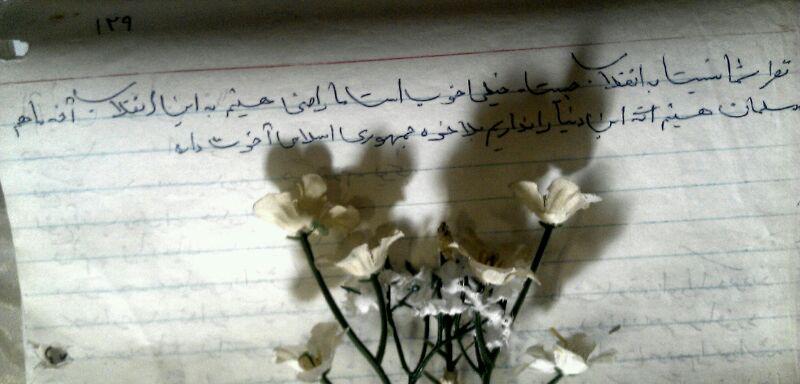 ۱۲۹
نظر شما نسبت به انقلاب چیست. خیلی خوب است ما راضی هستیم به این انقلاب. آخه ما هم
مسلمان هستیم اگه این دنیا را نداریم بلاخره جمهوری اسلامی آخرت داره